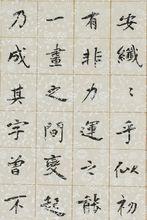 安纖〻乎似初
有非力運之能
一畫之間變起
乃成其字曾不